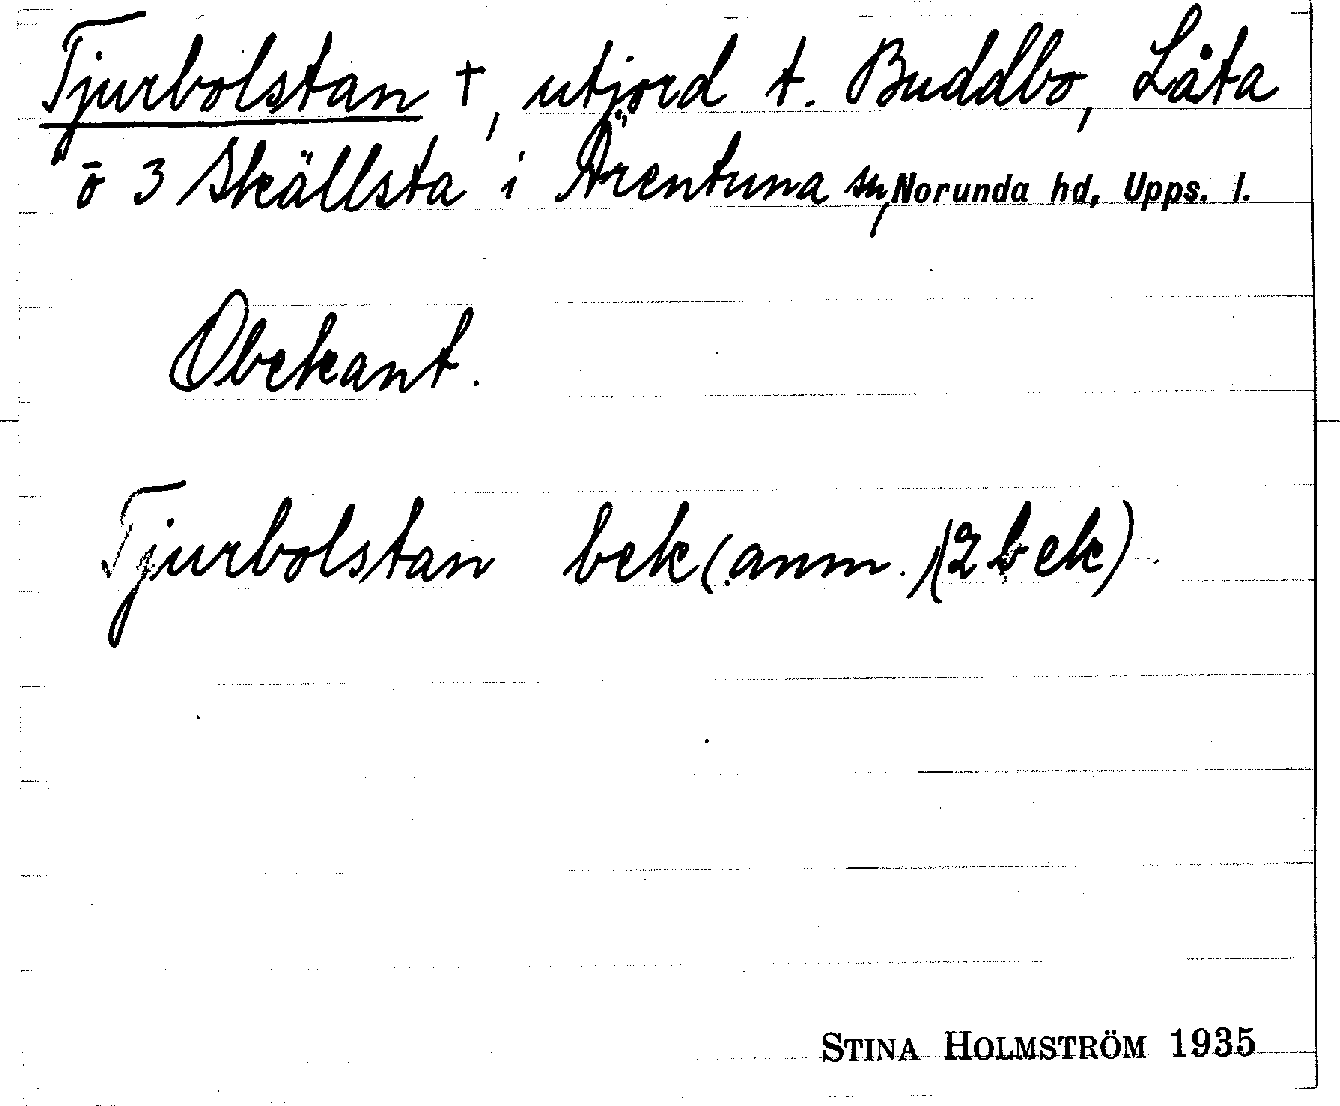 Tjurbolstan †, utjord t. Buddbo, Låta
o̅ 3 Skällsta i Ärentuna sn, Norunda hd, Upps. l.
Obekant.
Tjurbolstan bek (anm.) (2 bek)
STINA HOLMSTRÖM 1935